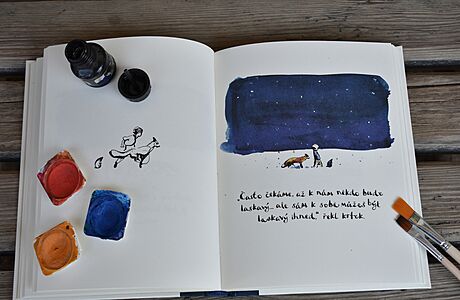 „Často čekáme, až k nám někdo bude
laskavý... ale sám k sobě můžeš být
laskavý ihned,“ řekl krtek.